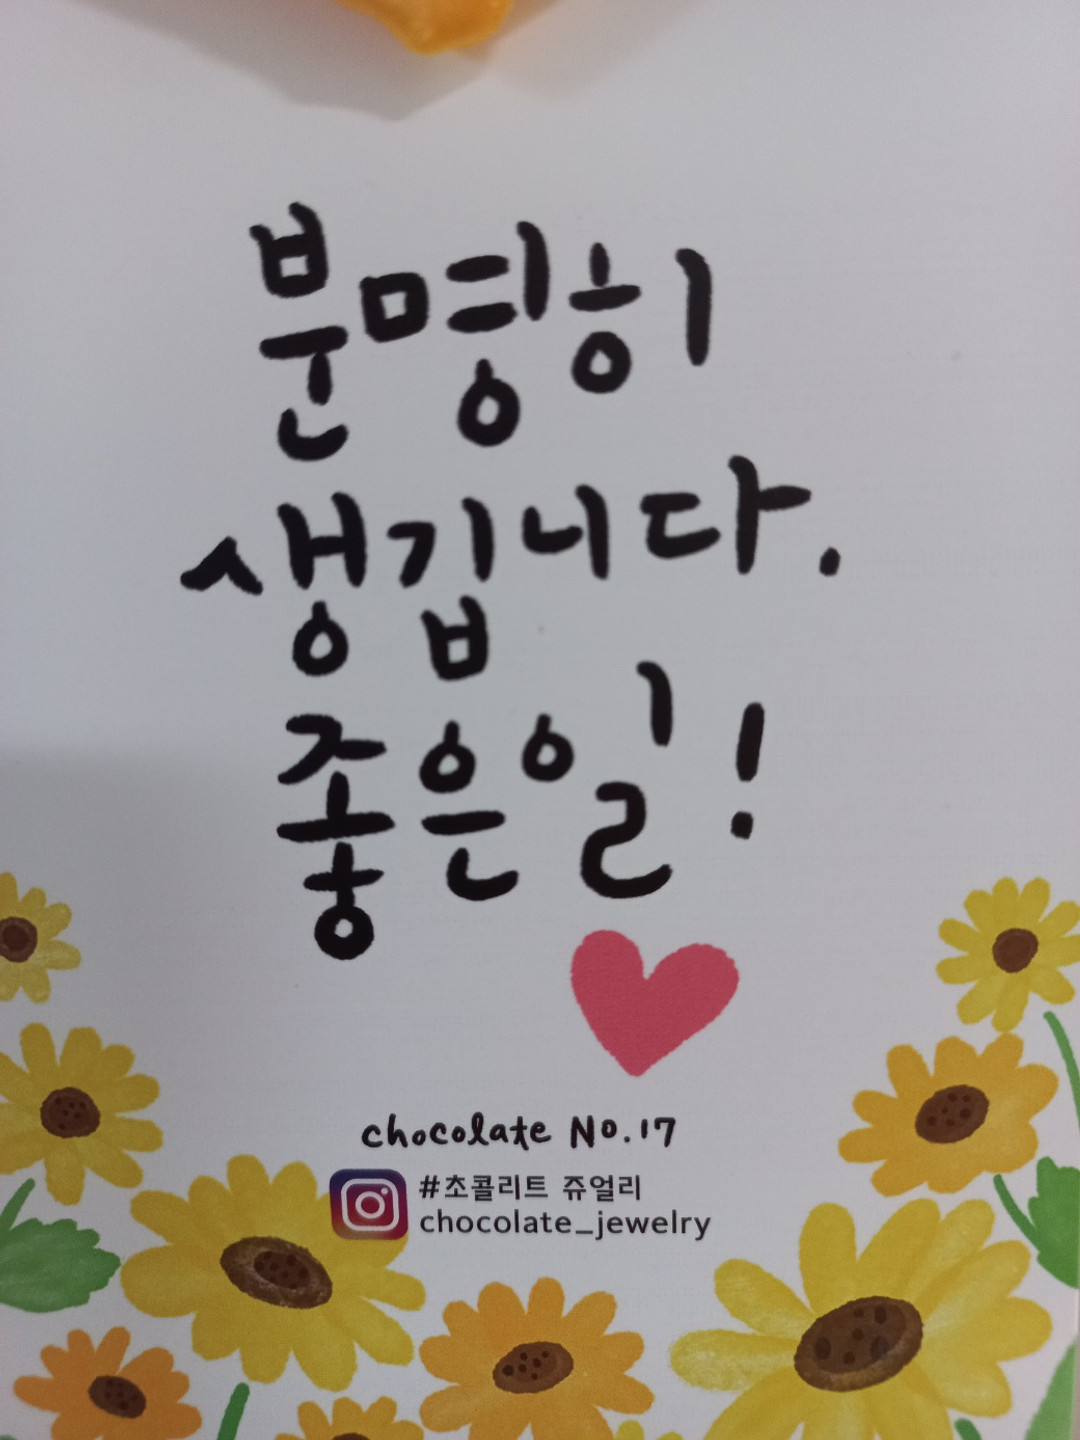 분명히
생깁니다.
좋은일!
chocolate No.17
#초콜리트 쥬얼리
chocolate_jewelry